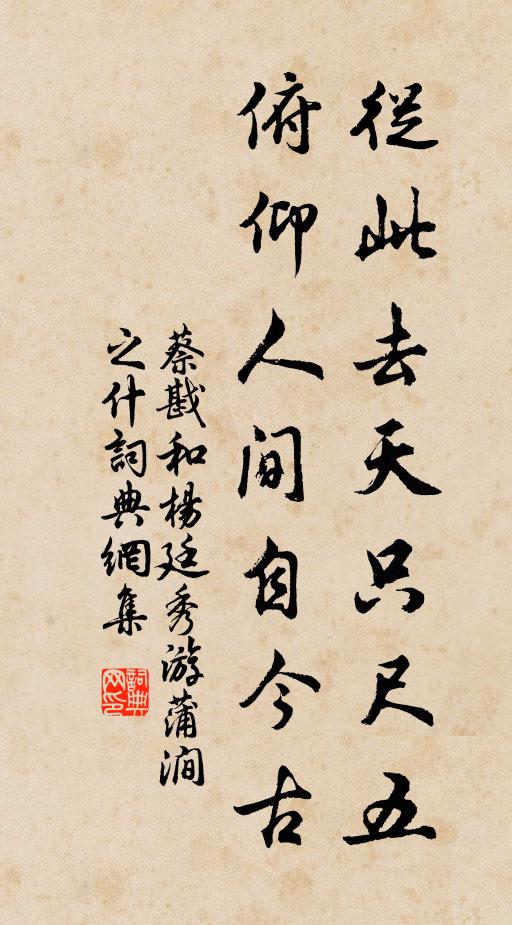 從此去天只尺五
俯仰人間自今古
蔡戡和楊廷秀游蒲澗
之什詞典網集
詞典網印